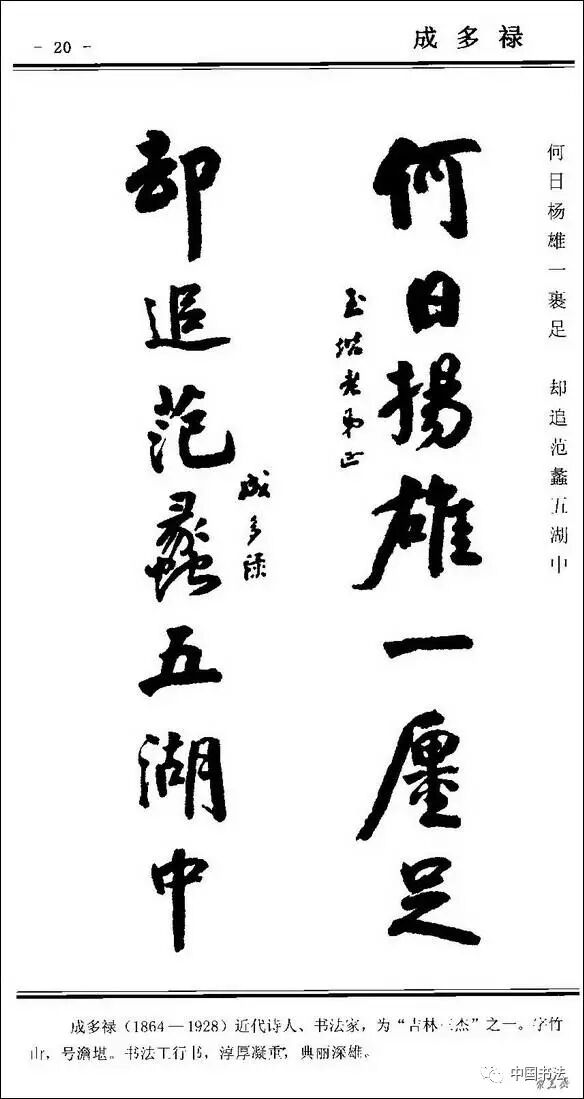 - 20 -
成多禄
何日杨雄一裹足 却追范蠡五湖中
何日揚雄一廛足
玉堦老弟正
却追范蠡五湖中
成多禄
成多禄（1864—1928）近代诗人、书法家，为“吉林三杰”之一。字竹
山，号澹堪。书法工行书，淳厚凝重，典丽深雄。
中国书法